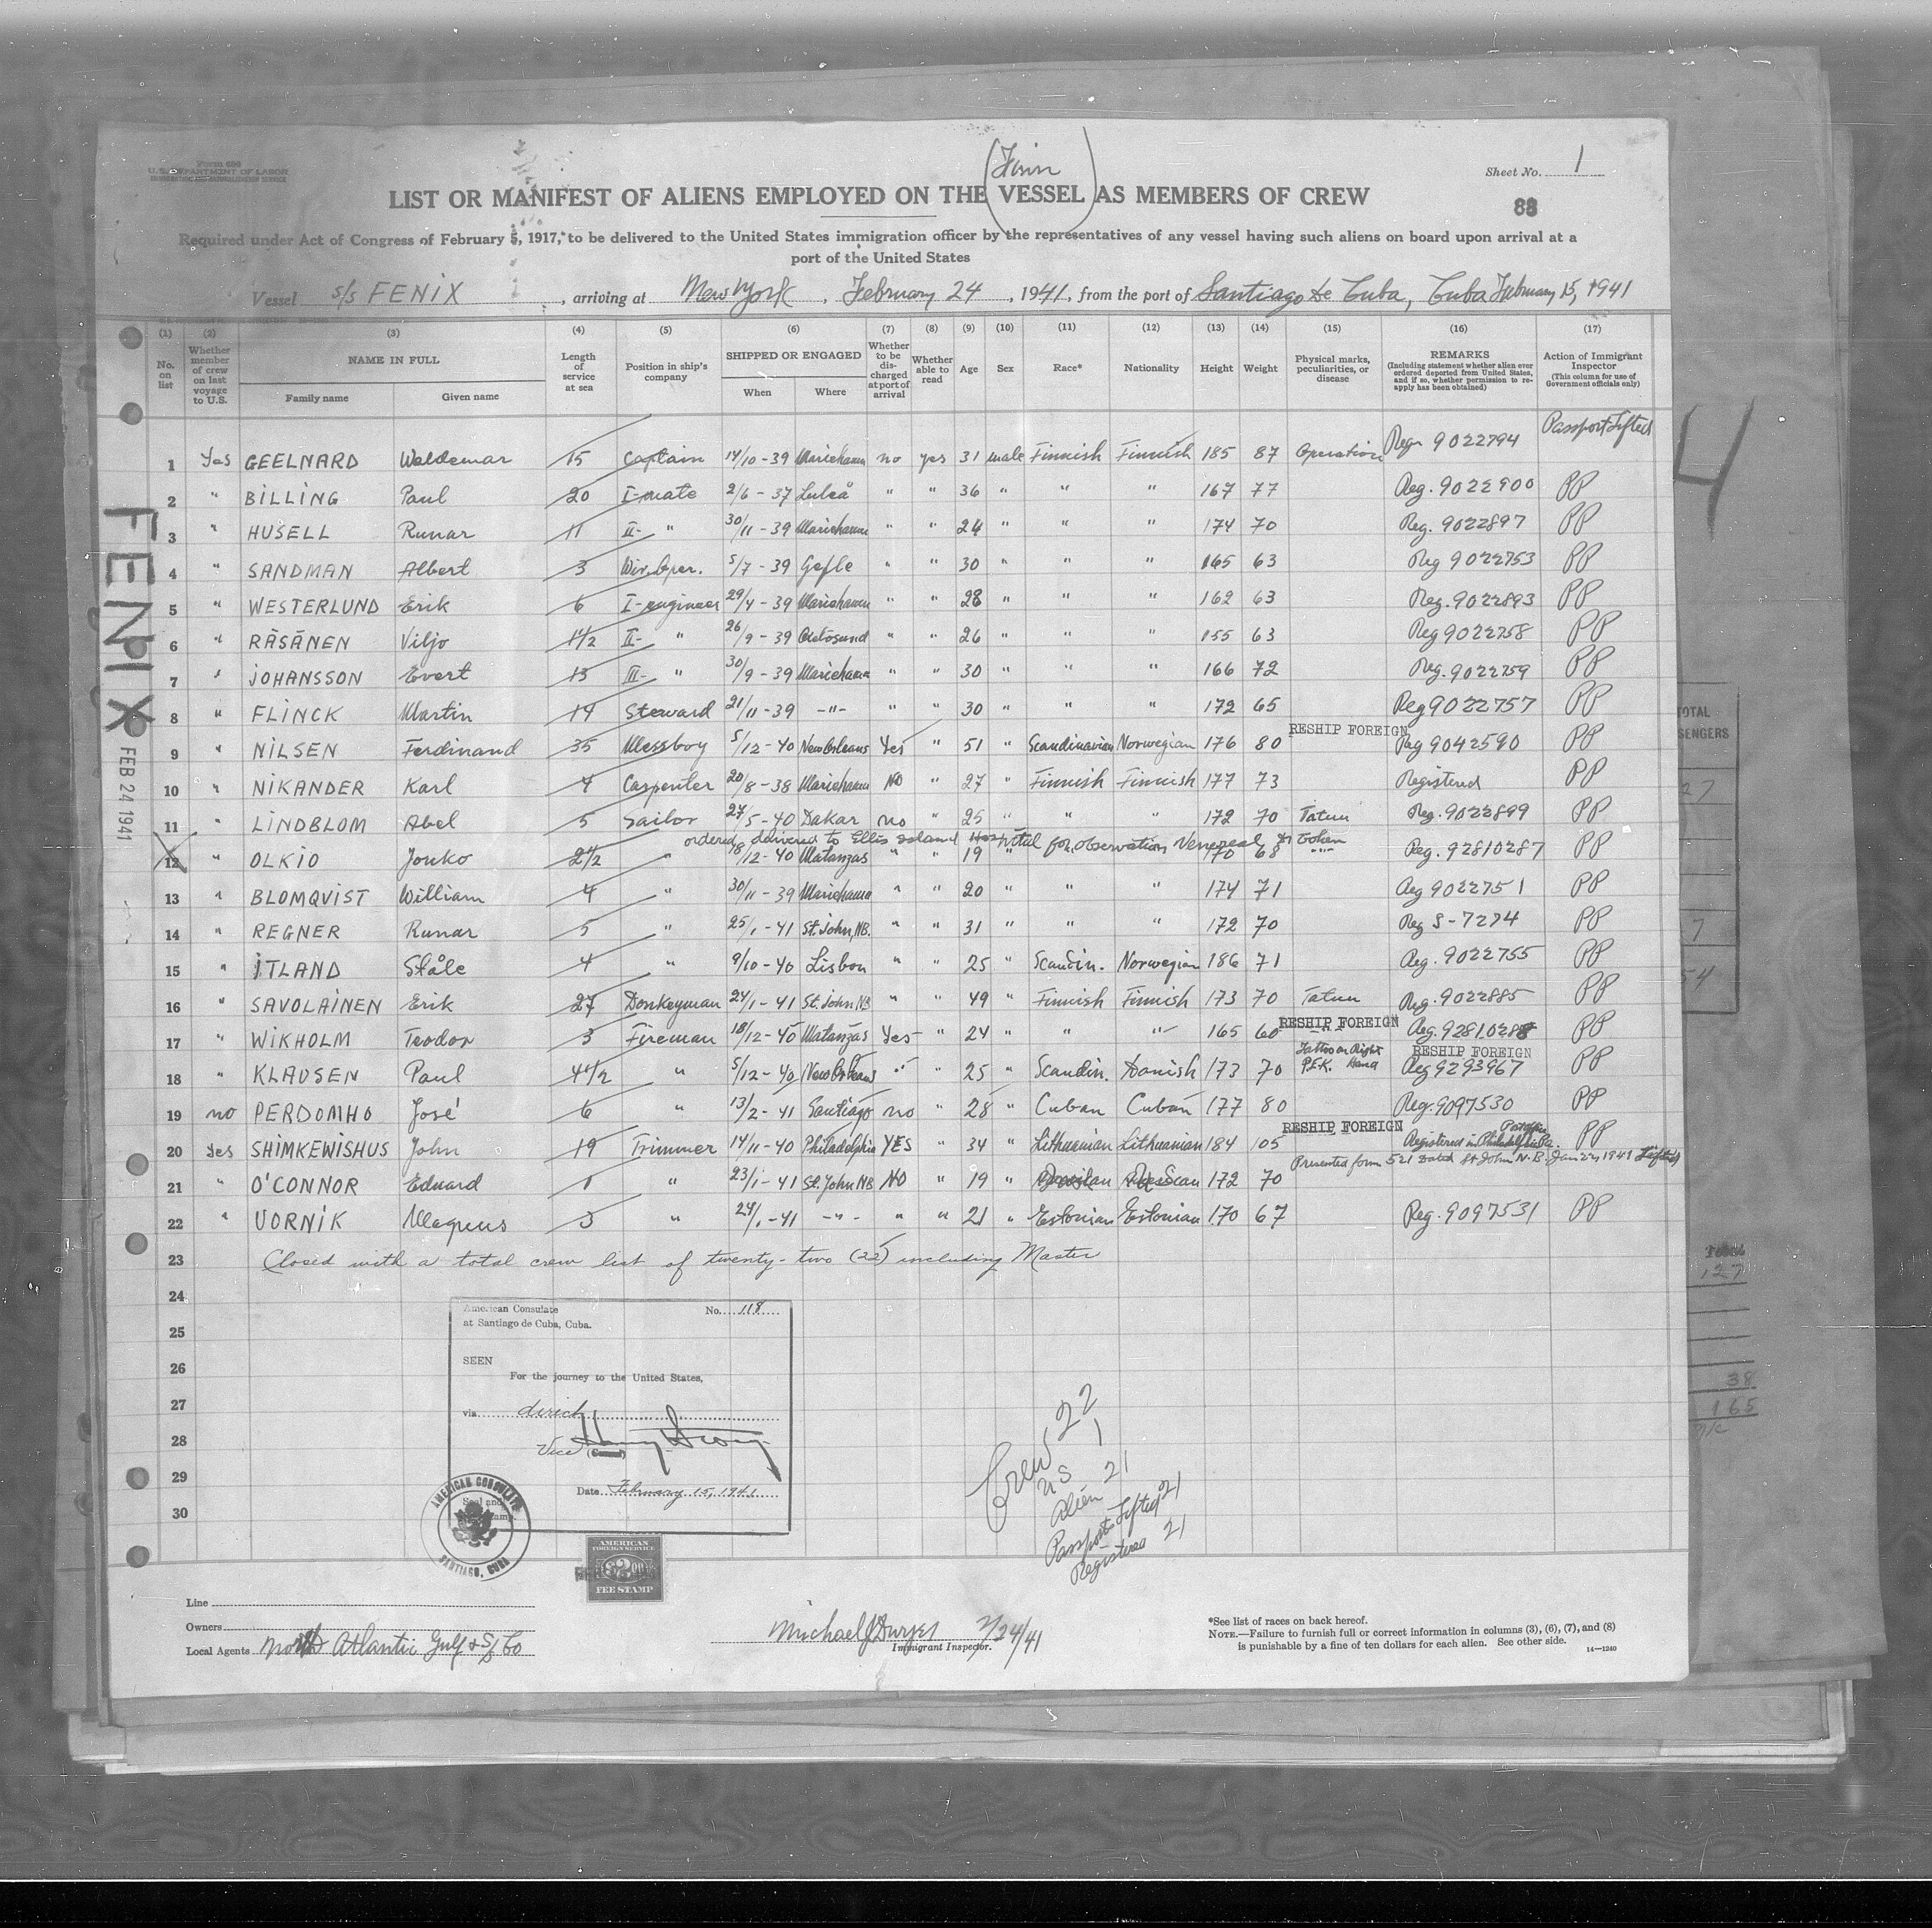 (Finn)
Form 680
U. S. DEPARTMENT OF LABOR
IMMIGRATION AND NATURALIZATION SERVICE
Sheet No. 1
LIST OR MANIFEST OF ALIENS EMPLOYED ON THE VESSEL AS MEMBERS OF CREW
88
Required under Act of Congress of February 5, 1917, to be delivered to the United States immigration officer by the representatives of any vessel having such aliens on board upon arrival at a
port of the United States
Vessel s/s FENIX, arriving at New York, February 24, 1941, from the port of Santiago de Cuba, Cuba February 15, 1941
(1) (2) (3) (4) (5) (6) (7) (8) (9) (10) (11) (12) (13) (14) (15) (16) (17)
No. on list
Whether member of crew on last voyage to U.S.
NAME IN FULL
Family name
Given name
Length of service at sea
Position in ship's company
SHIPPED OR ENGAGED
When
Where
Whether to be discharged at port of arrival
Whether able to read
Age
Sex
Race*
Nationality
Height
Weight
Physical marks, peculiarities, or disease
REMARKS
(Including statement whether alien ever ordered deported from United States, and if so, whether permission to reapply has been obtained)
Action of Immigrant Inspector
(This column for use of Government officials only)
Passport Lifted
1 Yes GEELNARD Waldemar 15 Captain 14/10-39 Mariehamn no yes 31 male Finnish Finnish 185 87 Operation Regr 9022794
2 " BILLING Paul 20 I-mate 2/6-37 Luleå " " 36 " " " 167 77 Reg. 9022900 PP
3 " HUSELL Runar 11 II- " 30/11-39 Mariehamn " " 24 " " " 174 70 Reg. 9022897 PP
4 " SANDMAN Albert 3 Wir. Oper. 5/7-39 Gefle " " 30 " " " 165 63 Reg 9022753 PP
5 " WESTERLUND Erik 6 I-engineer 29/4-39 Mariehamn " " 28 " " " 162 63 Reg. 9022893 PP
6 " RÄSÄNEN Viljo 1 1/2 II- " 26/9-39 " " 26 " " " 155 63 Reg 9022758 PP
7 " JOHANSSON Evert 13 III- " 30/9-39 Mariehamn " " 30 " " " 166 72 Reg. 9022759 PP
8 " FLINCK Martin 14 Steward 21/11-39 -"- " " 30 " " " 172 65 Reg 9022757 PP
RESHIP FOREIGN
9 " NILSEN Ferdinand 35 Messboy 5/12-40 New Orleans Yes " 51 " Scandinavian Norwegian 176 80 Reg 9042590 PP
10 " NIKANDER Karl 4 Carpenter 20/8-38 Mariehamn NO " 27 " Finnish Finnish 177 73 Registered PP
11 " LINDBLOM Abel 5 Sailor 27/5-40 Dakar no " 25 " " " 172 70 Tatun Reg. 9022899 PP
ordered delivered to Ellis Island Hospital for observation Venereal
12 " OLKIO Jouko 2 1/2 " 18/12-40 Matanzas " " 19 " 170 68 -"- Reg. 92810287 PP
13 " BLOMQVIST William 4 " 30/11-39 Mariehamn " " 20 " " " 174 71 Reg 9022751 PP
14 " REGNER Runar 5 " 25/1-41 St. John, NB. " " 31 " " " 172 70 Reg S-7274 PP
15 " ITLAND Ståle 4 " 9/10-40 Lisbon " " 25 " Scandin. Norwegian 186 71 Reg. 9022755 PP
16 " SAVOLAINEN Erik 27 Donkeyman 24/1-41 St. John NB " " 49 " Finnish Finnish 173 70 Tatun Reg. 9022885 PP
RESHIP FOREIGN
17 " WIKHOLM Teodor 3 Fireman 18/12-40 Matanzas Yes " 24 " " " 165 60 Reg. 92810288 PP
Tattoo on Right Hand P.E.K. RESHIP FOREIGN
18 " KLAUSEN Paul 4 1/2 " 5/12-40 New Orleans " " 25 " Scandin. Danish 173 70 Reg 9293967 PP
19 no PERDOMHO José 6 " 13/2-41 Santiago no " 28 " Cuban Cuban 177 80 Reg. 9097530 PP
RESHIP FOREIGN
20 Yes SHIMKEWISHUS John 19 Trimmer 14/11-40 Philadelphia YES " 34 " Lithuanian Lithuanian 184 105 Registered in Philadelphia Pa. PP
Presented form 521 Dated St John N.B. Jan 22, 1941 Lifted
21 " O'CONNOR Eduard 1 " 23/1-41 St. John NB NO " 19 " 172 70
22 " UORNIK Magnus 3 " 24/1-41 -"- " " 21 " Estonian Estonian 170 67 Reg. 9097531 PP
23 Closed with a total crew list of twenty-two (22) including Master
24
25
26
27
28
29
30
FENIX
FEB 24 1941
American Consulate No. 118
at Santiago de Cuba, Cuba.
SEEN
For the journey to the United States,
via direct
Vice
Date February 15, 1941
AMERICAN CONSULATE
SANTIAGO, CUBA
AMERICAN
FOREIGN SERVICE
$2.00
FEE STAMP
Crew 22
US 1
Alien 21
Passports Lifted 21
Registered 21
Line
Owners
Local Agents North Atlantic Gulf S/S Co
Michael J Dwyer 2/24/41
Immigrant Inspector.
*See list of races on back hereof.
NOTE.—Failure to furnish full or correct information in columns (3), (6), (7), and (8)
is punishable by a fine of ten dollars for each alien. See other side.
14—1240
4
TOTAL
127
38
165